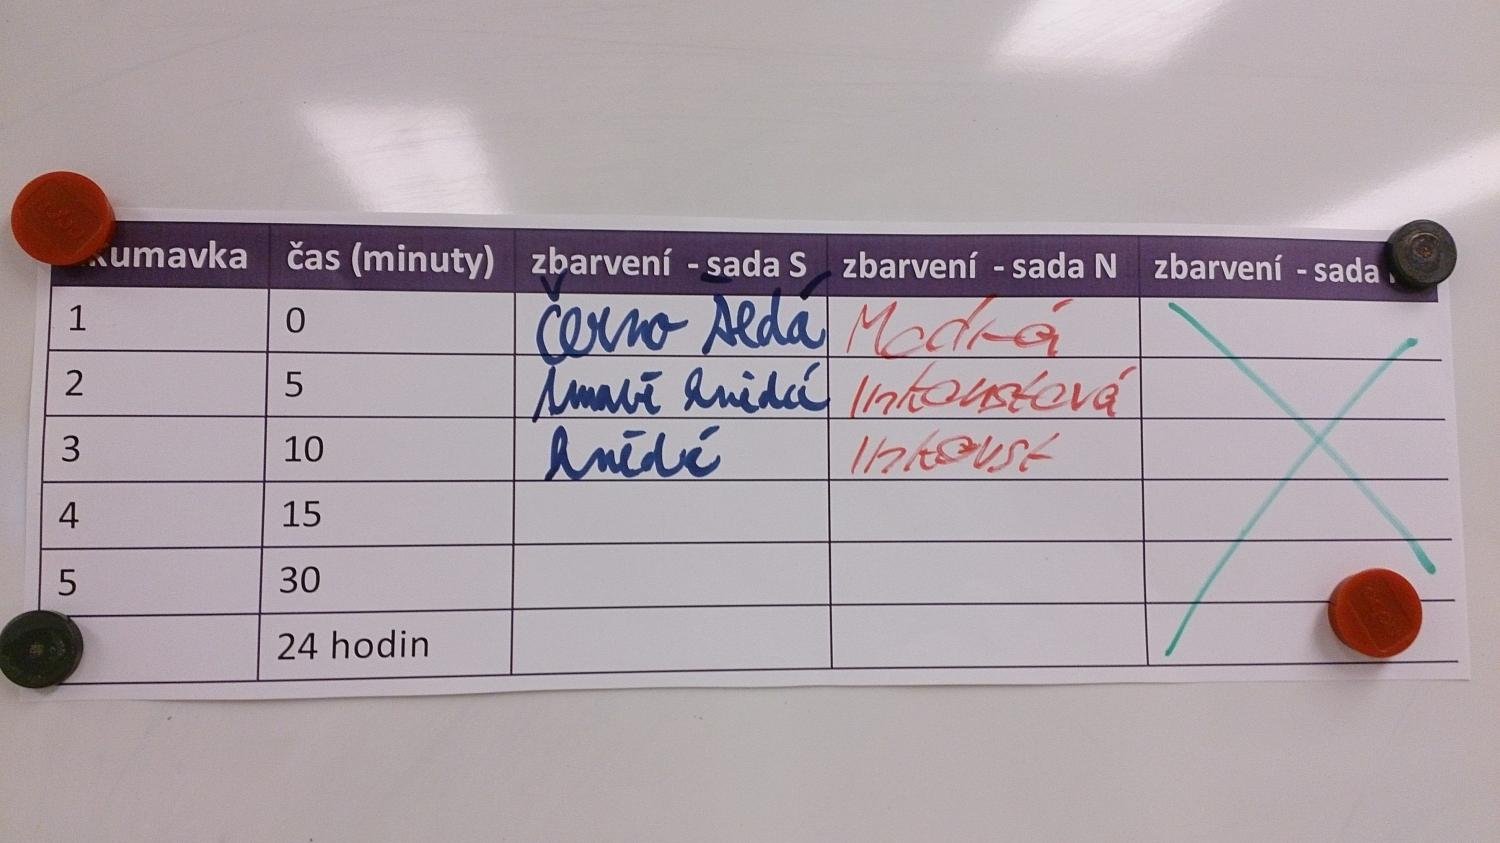 kumavka čas (minuty) zbarvení - sada S zbarvení - sada N zbarvení - sada
1 0 Černo Šedá Modrá
2 5 tmavě hnědá Inkoustová
3 10 hnědá Inkoust
4 15
5 30
24 hodin